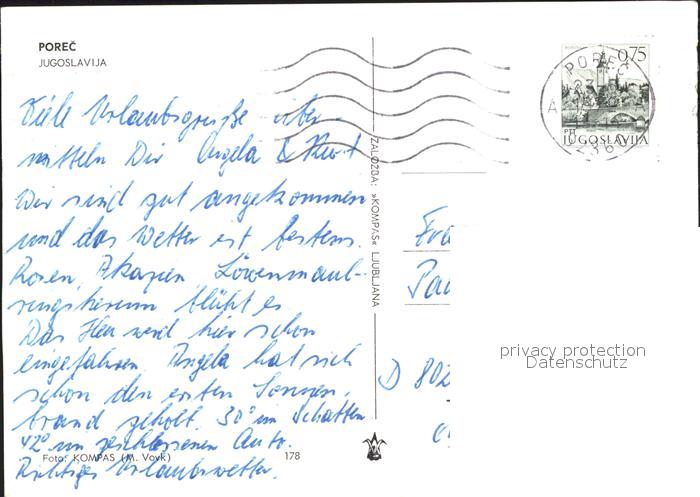 POREČ
JUGOSLAVIJA
Viele Urlaubsgrüße über-
mitteln Dir Angela & Kurt
Wir sind gut angekommen
und das Wetter ist bestens.
Rosen, Akazien, Löwenmaul-
ringsherum blüht es
Das Heu wird hier schon
eingefahren. Angela hat sich
schon den ersten Sonnen-
brand geholt. 30° im Schatten
42° im geschlossenen Auto.
Richtiges Urlaubswetter.
Foto: KOMPAS (M. Vovk)
178
ZALOŽBA: »KOMPAS« LJUBLJANA
0,75
POREČ
JUGOSLAVIJA
Fra
Pau
D 802
privacy protection
Datenschutz